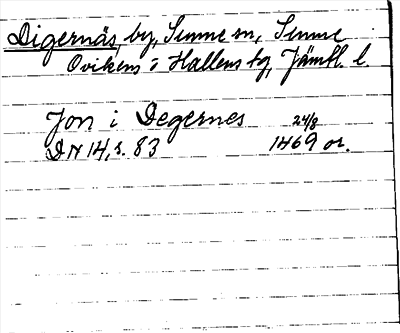 Digernäs, by, Sunne sn, Sunne
Ovikens o Hallens tg, Jämtl. l.
Jon i Degernes 24/8
DN 14, s. 83 1469 or.